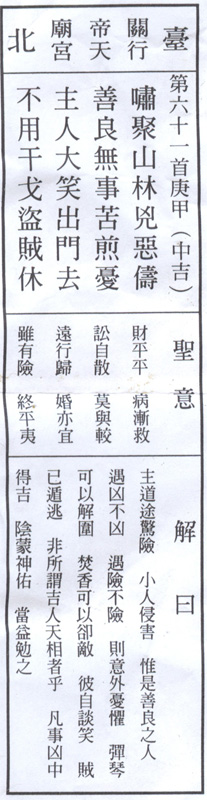 臺北
關帝廟
行天宮
第六十一首庚甲(中吉)
嘯聚山林兇惡儔
善良無事苦煎憂
主人大笑出門去
不用干戈盜賊休
聖意
財平平 病漸救
訟自散 莫與較
遠行歸 婚亦宜
雖有險 終平夷
解曰
主道途驚險 小人侵害 惟是善良之人
遇凶不凶 遇險不險 則意外憂懼 彈琴
可以解圍 焚香可以卻敵 彼自談笑 賊
已遁逃 非所謂吉人天相者乎 凡事凶中
得吉 陰蒙神佑 當益勉之